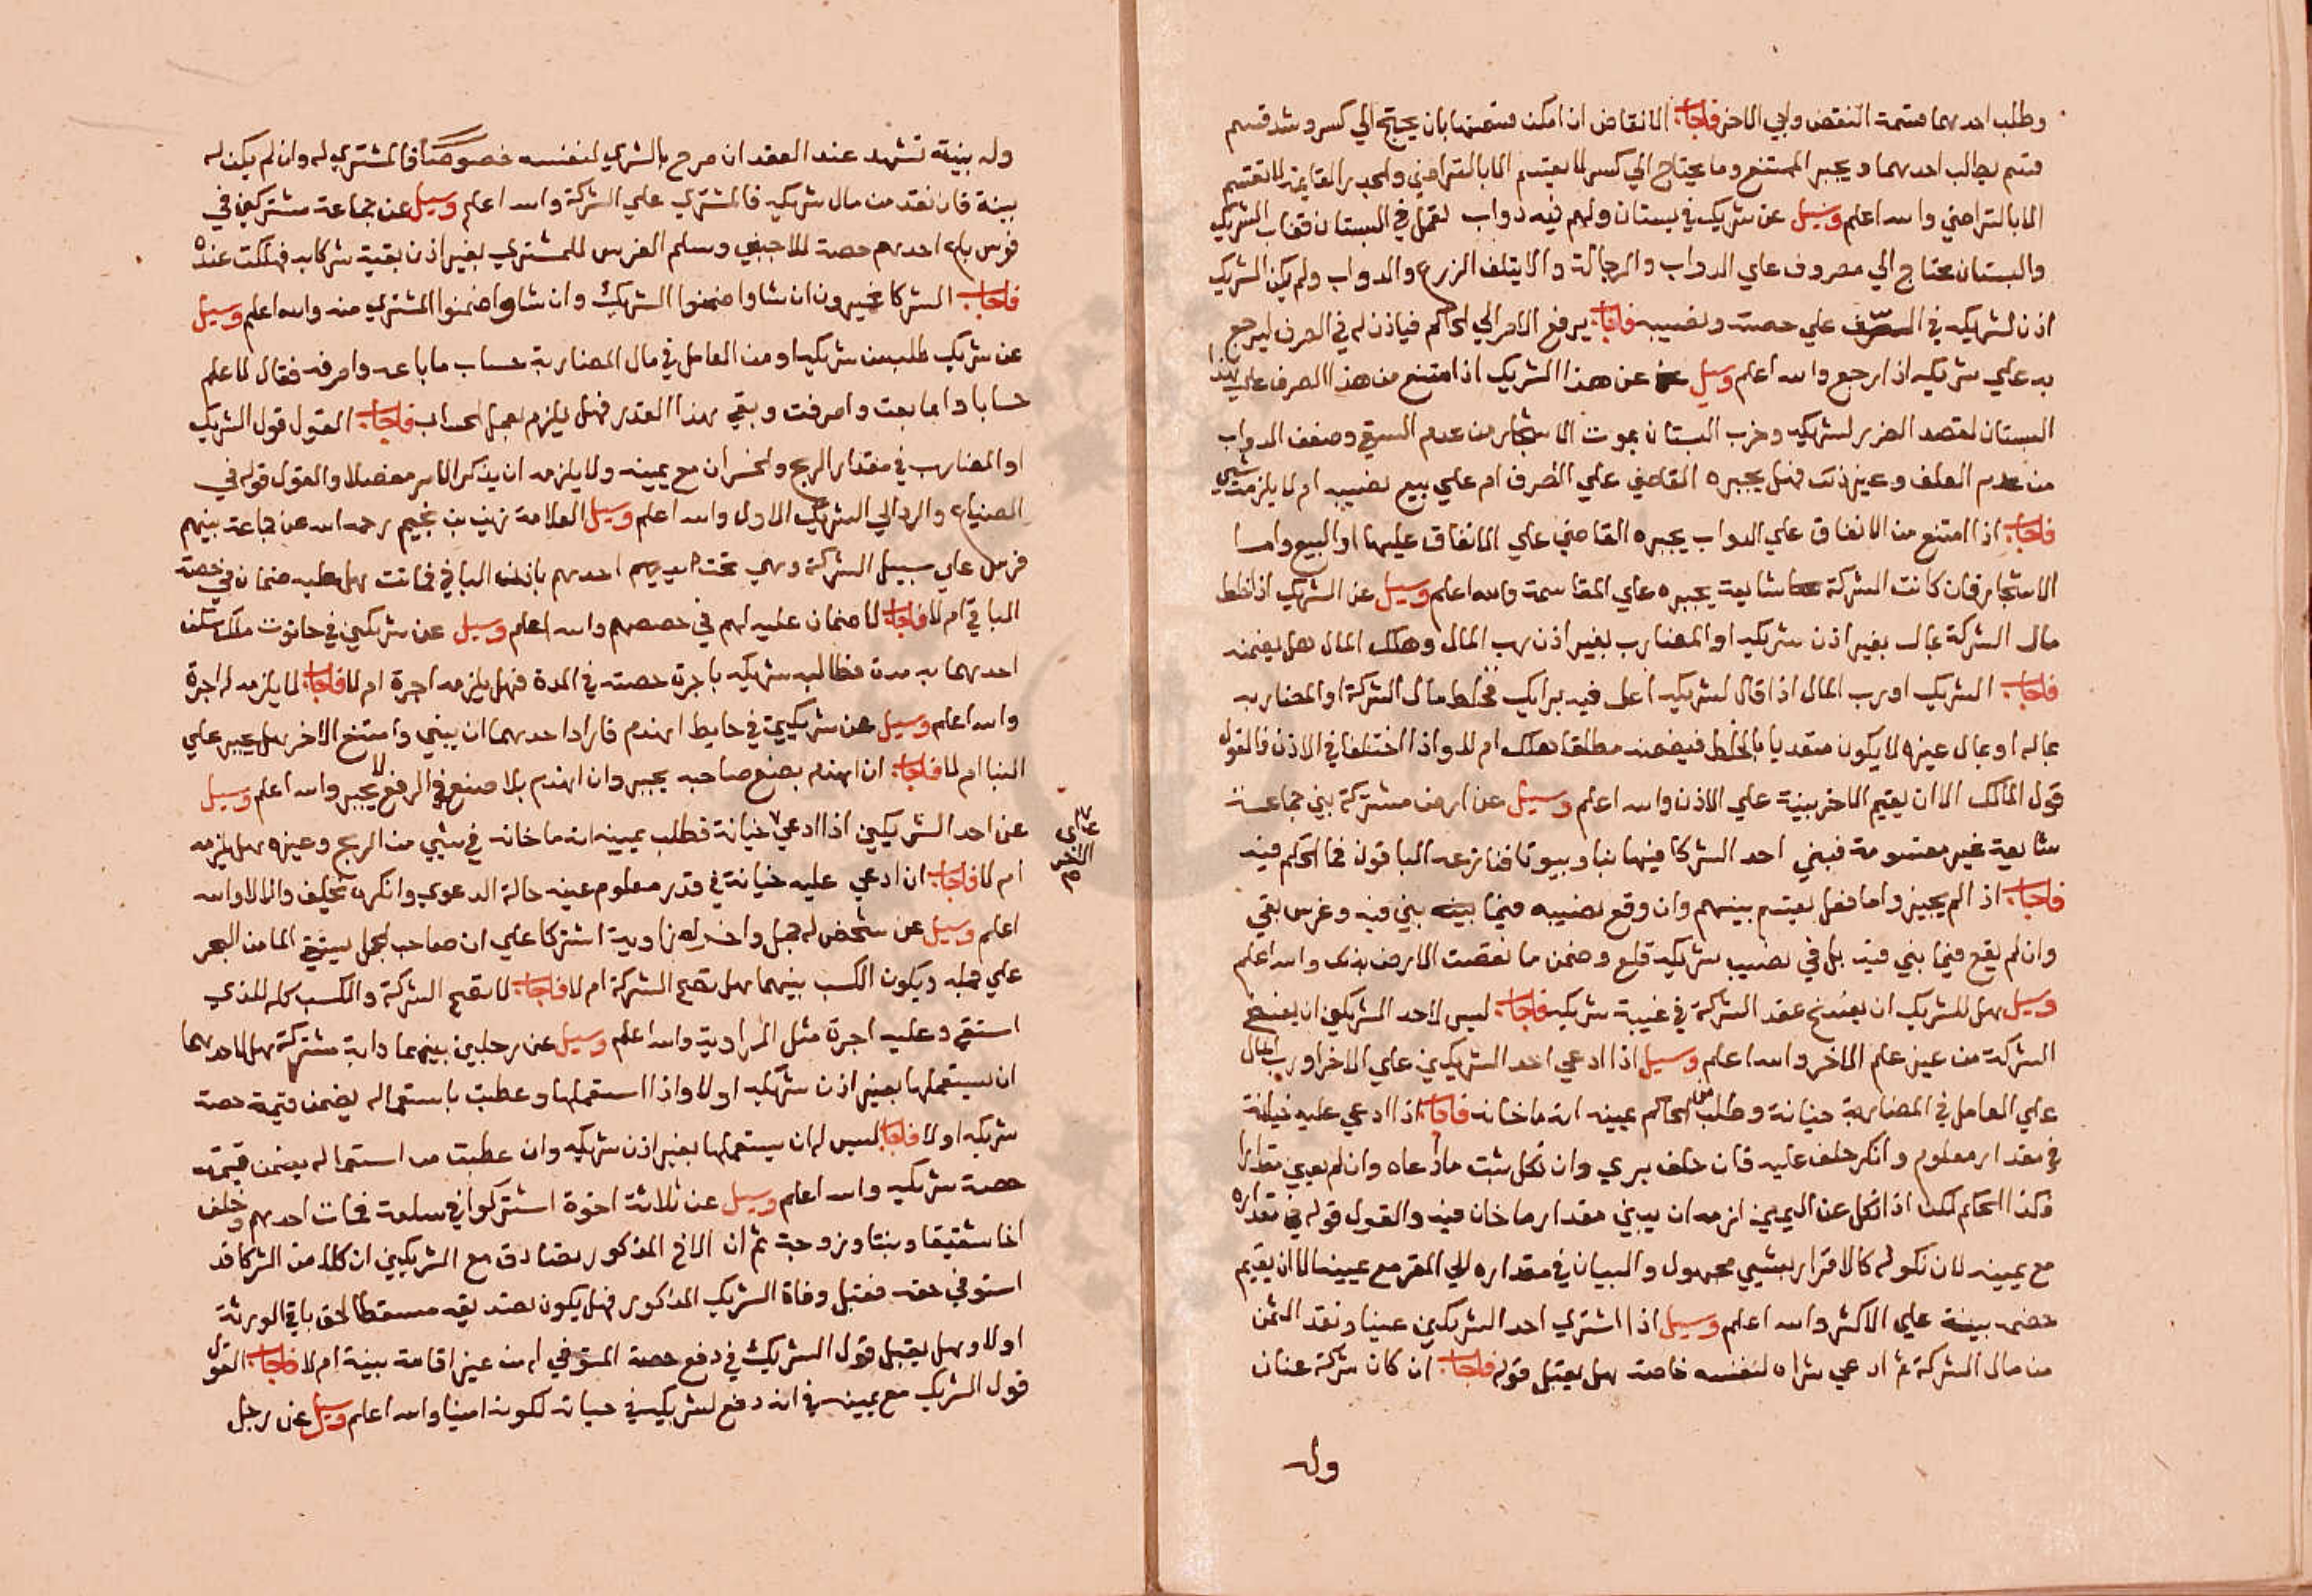 وطلب احدهما قسمة النقض وابي الاخر فاجاب الانقاض ان امكن قسمتها بان يحتج الي كسر وشد قسم
قسم بطالب احدهما ويجبر الممتنع وما يحتاج الي كسر لا يقسم الا بالتراضي والجدر القايمة لا تقسم
الا بالتراضي والله اعلم وسيل عن شريك في بستان ولهم فيه دواب تعمل في البستان فغاب الشريك
والبستان محتاج الي مصروف علي الدواب والرجالة والا يتلف الزرع والدواب ولم يكن الشريك
اذن لشريكه في الصرف علي حصته ونصيبه فاجاب يرفع الامر الي الحاكم فياذن له في الصرف ليرجع
به علي شريكه اذا رجع والله اعلم وسيل عن هذا الشريك اذا امتنع من هذا الصرف علي هذا
البستان لقصد الضرر لشريكه وخرب البستان بموت الاشجار من عدم السقي وضعف الدواب
من عدم العلف وغير ذلك فهل يجبره القاضي علي الصرف ام علي بيع نصيبه ام لا يلزمه شي
فاجاب اذا امتنع من الانفاق علي الدواب يجبره القاضي علي الانفاق عليها او البيع واما
الاشجار فان كانت الشركة شايعة يجبره علي المقاسمة والله اعلم وسيل عن الشريك اذا خلط
مال الشركة بماله بغير اذن شريكه او المضارب بغير اذن رب المال وهلك المال هل يضمنه
فاجاب الشريك او رب المال اذا قال لشريكه اعمل فيه برايك فخلط مال الشركة او المضاربه
بماله او بمال غيره لا يكون متعديا بالخلط فيضمنه مطلقا هلك ام لا واذا اختلفا في الاذن فالقول
قول المالك الا ان يقيم الاخر بينة علي الاذن والله اعلم وسيل عن ارض مشتركة بين جماعة
شايعة غير مقسومة فبني احد الشركا فيها بنا وبيوتا فنازعه الباقون فما الحكم فيه
فاجاب اذا لم يجيزوا ما فعل يقسم بينهم وان وقع نصيبه فيما بني فيه وغرس بقي
وان لم يقع فيما بني فيه بل في نصيب شريكه قلع وضمن ما نقصت الارض بذلك والله اعلم
وسيل هل للشريك ان يفسخ عقد الشركة في غيبة شريكه فاجاب ليس لاحد الشريكين ان يفسخ
الشركة من غير علم الاخر والله اعلم وسيل اذا ادعي احد الشريكين علي الاخر او رب المال
علي العامل في المضاربة خيانة وطلب من الحاكم يمينه انه ما خانه فاجاب اذا ادعي عليه خيانة
في مقدار معلوم وانكر حلف عليه فان حلف بري وان نكل ثبت ما ادعاه وان لم يعين مقدارا
فكذا الحكم لكن اذا نكل عن اليمين لزمه ان يبين مقدار ما خان فيه والقول قوله في مقداره
مع يمينه لان نكوله كالاقرار بشي مجهول والبيان في مقداره الي المقر مع يمينه الا ان يقيم
خصمه بينة علي الاكثر والله اعلم وسيل اذا اشتري احد الشريكين عينا ونقد الثمن
من مال الشركة ثم ادعي شراه لنفسه خاصة هل يقبل قوله فاجاب ان كان شركة عنان
وله
وله بينة تشهد عند العقد ان صرح بالشري لنفسه خصوصا فالمشتري له وان لم يكن له
بينة فان نقد من مال شريكه فالمشتري علي الشركة والله اعلم وسيل عن جماعة مشتركين في
فرس باع احدهم حصته للاجنبي وسلم الفرس للمشتري بغير اذن بقية شركايه فهلكت عنده
فاجاب الشركا مخيرون ان شاوا ضمنوا الشريك وان شاوا ضمنوا المشتري منه والله اعلم وسيل
عن شريك طلب من شريكه او من العامل في مال المضاربة حساب ما باعه وصرفه فقال لا علم
حسابا وانما بعت وصرفت وبقي هذا القدر فهل يلزم بعمل الحساب فاجاب القول قول الشريك
او المضارب في مقدار الربح والخسران مع يمينه ولا يلزمه ان يذكر الامر مفصلا والقول قوله في
الضياع والرد الي الشريك الاول والله اعلم وسيل العلامة زين بن نجيم رحمه الله عن جماعة بينهم
فرس علي سبيل الشركة وهي تحت يد احدهم باذن الباقي فماتت هل عليه ضمان في حصة
الباقي ام لا فاجاب لا ضمان عليه لهم في حصصهم والله اعلم وسيل عن شريكين في حانوت ملك سكن
احدهما به مدة فطالبه شريكه باجرة حصته في المدة فهل يلزمه اجرة ام لا فاجاب لا يلزمه له اجرة
والله اعلم وسيل عن شريكين في حايط انهدم فاراد احدهما ان يبني وامتنع الاخر هل يجبر علي
البنا ام لا فاجاب ان انهدم بصنع صاحبه يجبر وان انهدم بلا صنع في الرفع لا يجبر والله اعلم وسيل
عن احد الشريكين اذا ادعي خيانة فطلب يمينه انه ما خانه في شيي من الربح وغيره هل يلزمه
علي الاخر
ام لا فاجاب ان ادعي عليه خيانة في قدر معلوم عينه حالة الدعوي وانكره يحلف والا لا والله
اعلم وسيل عن شخص له جمل واخر له راوية اشتركا علي ان صاحب الجمل يستقي الما من البحر
علي جمله ويكون الكسب بينهما هل تصح الشركة ام لا فاجاب لا تصح الشركة والكسب كله للذي
استقي وعليه اجرة مثل الراوية والله اعلم وسيل عن رجلين بينهما دابة مشتركة هل لاحدهما
ان يستعملها بغير اذن شريكه او لا واذا استعملها وعطبت باستعماله يضمن قيمة حصة
شريكه او لا فاجاب ليس له ان يستعملها بغير اذن شريكه وان عطبت من استعماله يضمن قيمة
حصة شريكه والله اعلم وسيل عن ثلاثة اخوة اشتركوا في سلعة فمات احدهم وخلف
اخا شقيقا وبنتا وزوجة ثم ان الاخ المذكور تصادق مع الشريكين ان كلا من الشركا قد
استوفي حقه قبل وفاة الشريك المذكور فهل يكون تصديقه مسقطا لحق باقي الورثة
او لا وهل يقبل قول الشريك في دفع حصة المتوفي له من غير اقامة بينة ام لا فاجاب القول
قول الشريك مع يمينه في انه دفع لشريكه في حياته لكونه امينا والله اعلم وسيل عن رجل